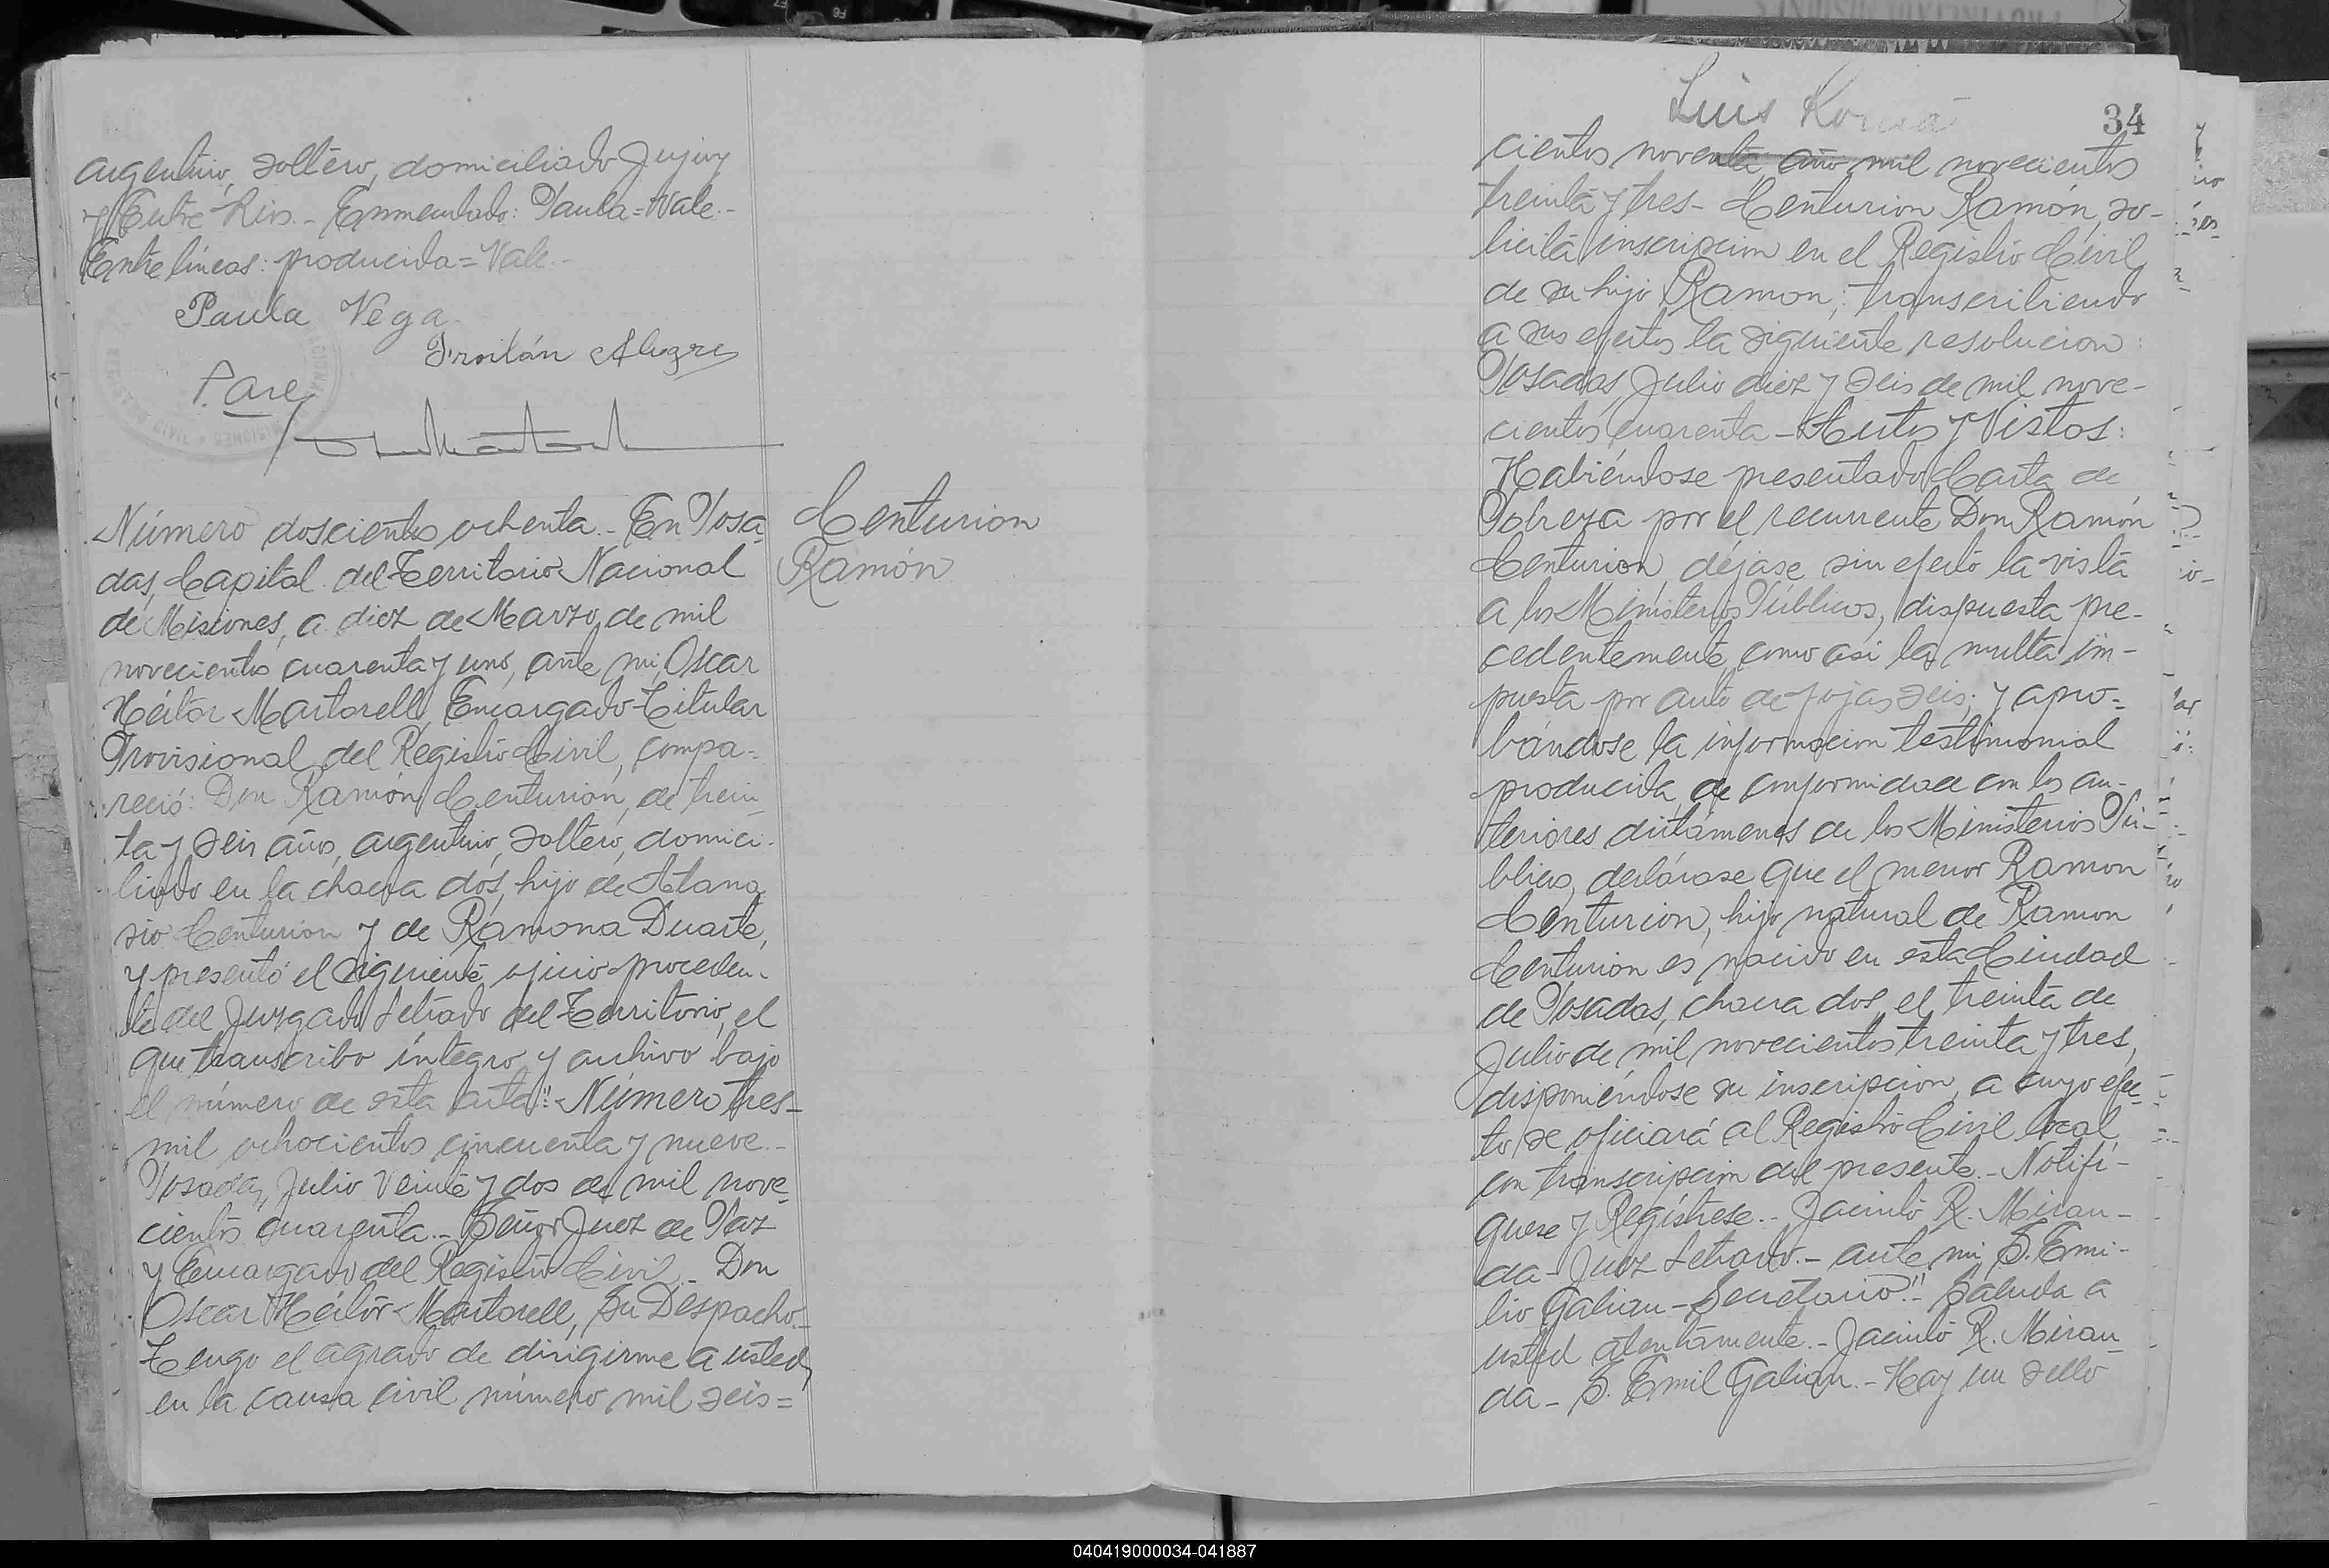 argentino, soltero, domiciliado Jujuy
y Entre Rios.- Enmendado: Paula=Vale.-
Entre líneas: producida=Vale.-
Paula Vega
Froilán Alegre
Número doscientos ochenta.- En Posa-
das, Capital del Territorio Nacional
de Misiones, a diez de Marzo de mil
novecientos cuarenta y uno, ante mi, Oscar
Héctor Martorell, Encargado Titular
Provisional del Registro Civil, compa-
reció: Don Ramón Centurion, de trein
ta y seis años, argentino, soltero, domici-
liado en la chacra dos, hijo de Atana
sio Centurion y de Ramona Duarte,
y presentó el siguiente oficio proceden-
te del Juzgado Letrado del Territorio, el
que transcribo íntegro y archivo bajo
el número de esta acta:" Número tres-
mil ochocientos cincuenta y nueve.-
Posadas, Julio Veinte y dos de mil nove-
cientos cuarenta.- Señor Juez de Paz
y Encargado del Registro Civil.- Don
Oscar Héctor Martorell, Su Despacho.-
Tengo el agrado de dirigirme a usted,
en la causa civil número mil seis=
Centurion
Ramón
Luis
34
cientos noventa, año mil novecientos
treinta y tres- Centurion Ramón, so-
licita inscripcion en el Registro Civil
de su hijo Ramon; transcribiendo
a sus efectos la siguiente resolucion:
Posadas, Julio diez y seis de mil nove-
cientos cuarenta- Autos y Vistos:
Habiéndose presentado Carta de
Pobreza por el recurrente Don Ramón
Centurion, déjase sin efecto la vista
a los Ministerios Públicos, dispuesta pre-
cedentemente, como asi la multa im-
puesta por auto de fojas seis; y apro-
bándose la informacion testimonial
producida, de conformidad con los an-
teriores dictámenes de los Ministerios Pú-
blicos, declárase que el menor Ramon
Centurion, hijo natural de Ramon
Centurion es nacido en esta Ciudad
de Posadas, chacra dos, el treinta de
Julio de mil novecientos treinta y tres,
disponiéndose su inscripcion, a cuyo efec-
to se oficiará al Registro Civil local,
con transcripcion del presente.- Notifí-
quese y Regístrese.- Jacinto R. Miran-
da- Juez Letrado.- ante mi S. Emi-
lio Galian- Secretario".- Saluda a
usted atentamente.- Jacinto R. Miran-
da- S. Emil Galian.- Hay un sello
040419000034-041887